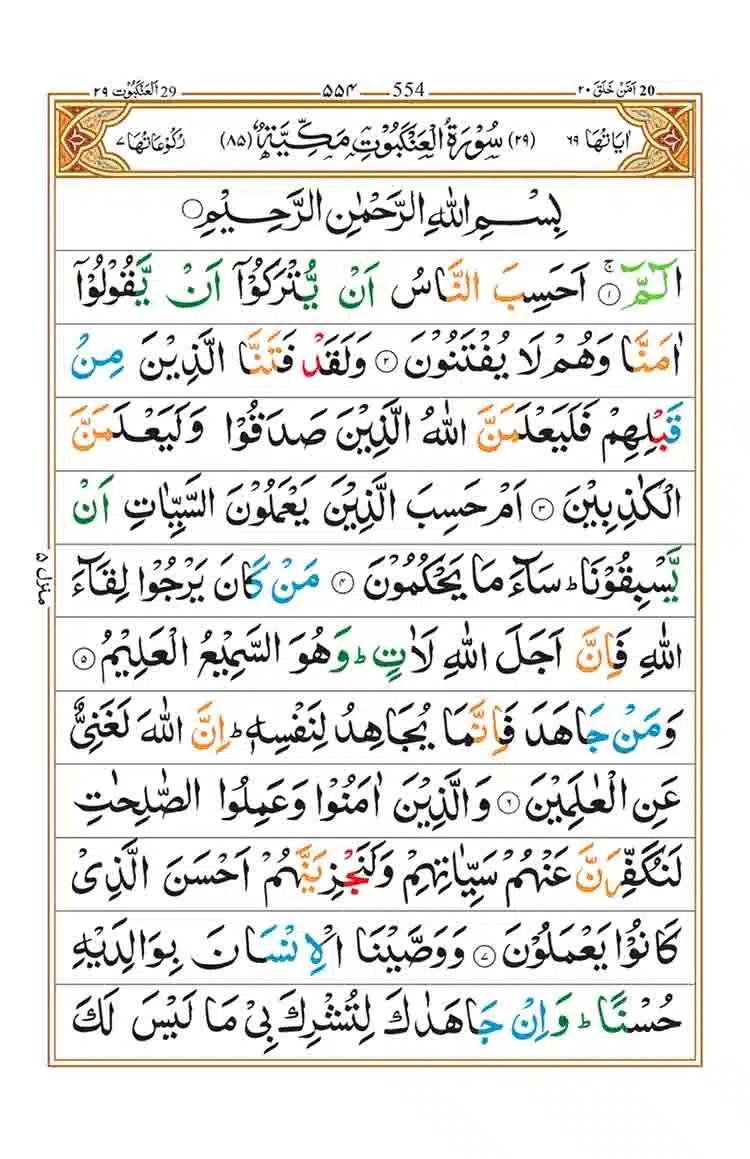 20 اَمَّنْ خَلَقَ ٢٠ 554 ۵۵۴ 29 اَلْعَنْكَبُوْت ٢٩
اٰيَاتُهَا ٦٩ (٢٩) سُوْرَةُ الْعَنْكَبُوْتِ مَكِّيَّةٌ (٨٥) رُكُوْعَاتُهَا ٧
بِسْمِ اللّٰهِ الرَّحْمٰنِ الرَّحِيْمِ
الٓمّٓ ۚ ١ اَحَسِبَ النَّاسُ اَنْ يُّتْرَكُوْۤا اَنْ يَّقُوْلُوْۤا
اٰمَنَّا وَهُمْ لَا يُفْتَنُوْنَ ٢ وَلَقَدْ فَتَنَّا الَّذِيْنَ مِنْ
قَبْلِهِمْ فَلَيَعْلَمَنَّ اللّٰهُ الَّذِيْنَ صَدَقُوْا وَلَيَعْلَمَنَّ
الْكٰذِبِيْنَ ٣ اَمْ حَسِبَ الَّذِيْنَ يَعْمَلُوْنَ السَّيِّاٰتِ اَنْ
يَّسْبِقُوْنَا ؕ سَآءَ مَا يَحْكُمُوْنَ ۴ مَنْ كَانَ يَرْجُوْا لِقَآءَ
اللّٰهِ فَاِنَّ اَجَلَ اللّٰهِ لَاٰتٍ ؕ وَهُوَ السَّمِيْعُ الْعَلِيْمُ ۵
وَمَنْ جَاهَدَ فَاِنَّمَا يُجَاهِدُ لِنَفْسِهٖ ؕ اِنَّ اللّٰهَ لَغَنِيٌّ
عَنِ الْعٰلَمِيْنَ ٦ وَالَّذِيْنَ اٰمَنُوْا وَعَمِلُوا الصّٰلِحٰتِ
لَنُكَفِّرَنَّ عَنْهُمْ سَيِّاٰتِهِمْ وَلَنَجْزِيَنَّهُمْ اَحْسَنَ الَّذِيْ
كَانُوْا يَعْمَلُوْنَ ٧ وَوَصَّيْنَا الْاِنْسَانَ بِوَالِدَيْهِ
حُسْنًا ؕ وَاِنْ جَاهَدٰكَ لِتُشْرِكَ بِيْ مَا لَيْسَ لَكَ
منزل ۵